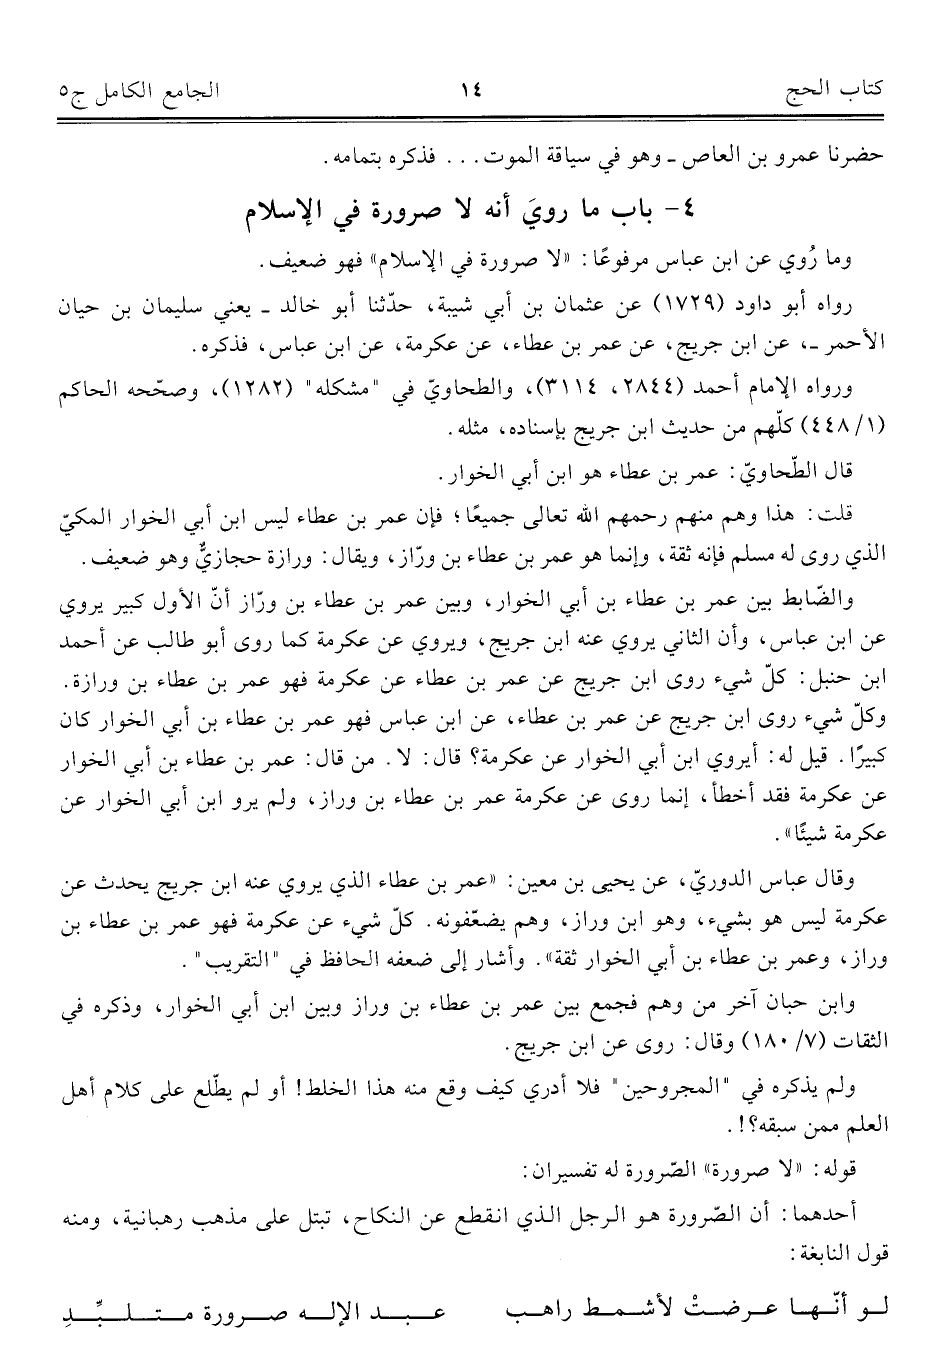 كتاب الحج ١٤ الجامع الكامل ج٥
حضرنا عمرو بن العاص ـ وهو في سياقة الموت... فذكره بتمامه.
٤- باب ما رويَ أنه لا صرورة في الإسلام
وما رُوي عن ابن عباس مرفوعًا: «لا صرورة في الإسلام» فهو ضعيف.
رواه أبو داود (١٧٢٩) عن عثمان بن أبي شيبة، حدّثنا أبو خالد ـ يعني سليمان بن حيان
الأحمر ـ، عن ابن جريج، عن عمر بن عطاء، عن عكرمة، عن ابن عباس، فذكره.
ورواه الإمام أحمد (٢٨٤٤، ٣١١٤)، والطحاويّ في "مشكله" (١٢٨٢)، وصحّحه الحاكم
(١/ ٤٤٨) كلّهم من حديث ابن جريج بإسناده، مثله.
قال الطّحاويّ: عمر بن عطاء هو ابن أبي الخوار.
قلت: هذا وهم منهم رحمهم الله تعالى جميعًا؛ فإن عمر بن عطاء ليس ابن أبي الخوار المكيّ
الذي روى له مسلم فإنه ثقة، وإنما هو عمر بن عطاء بن ورّاز، ويقال: ورازة حجازيٌّ وهو ضعيف.
والضّابط بين عمر بن عطاء بن أبي الخوار، وبين عمر بن عطاء بن ورّاز أنّ الأول كبير يروي
عن ابن عباس، وأن الثاني يروي عنه ابن جريج، ويروي عن عكرمة كما روى أبو طالب عن أحمد
ابن حنبل: كلّ شيء روى ابن جريج عن عمر بن عطاء عن عكرمة فهو عمر بن عطاء بن ورازة.
وكلّ شيء روى ابن جريج عن عمر بن عطاء، عن ابن عباس فهو عمر بن عطاء بن أبي الخوار كان
كبيرًا. قيل له: أيروي ابن أبي الخوار عن عكرمة؟ قال: لا. من قال: عمر بن عطاء بن أبي الخوار
عن عكرمة فقد أخطأ، إنما روى عن عكرمة عمر بن عطاء بن وراز، ولم يرو ابن أبي الخوار عن
عكرمة شيئًا».
وقال عباس الدوريّ، عن يحيى بن معين: «عمر بن عطاء الذي يروي عنه ابن جريج يحدث عن
عكرمة ليس هو بشيء، وهو ابن وراز، وهم يضعّفونه. كلّ شيء عن عكرمة فهو عمر بن عطاء بن
وراز، وعمر بن عطاء بن أبي الخوار ثقة». وأشار إلى ضعفه الحافظ في "التقريب".
وابن حبان آخر من وهم فجمع بين عمر بن عطاء بن وراز وبين ابن أبي الخوار، وذكره في
الثقات (٧/ ١٨٠) وقال: روى عن ابن جريج.
ولم يذكره في "المجروحين" فلا أدري كيف وقع منه هذا الخلط! أو لم يطّلع على كلام أهل
العلم ممن سبقه؟!.
قوله: «لا صرورة» الصّرورة له تفسيران:
أحدهما: أن الصّرورة هو الرجل الذي انقطع عن النكاح، تبتل على مذهب رهبانية، ومنه
قول النابغة:
لو أنّها عرضتْ لأشمط راهب عبد الإله صرورة متلبِّدِ